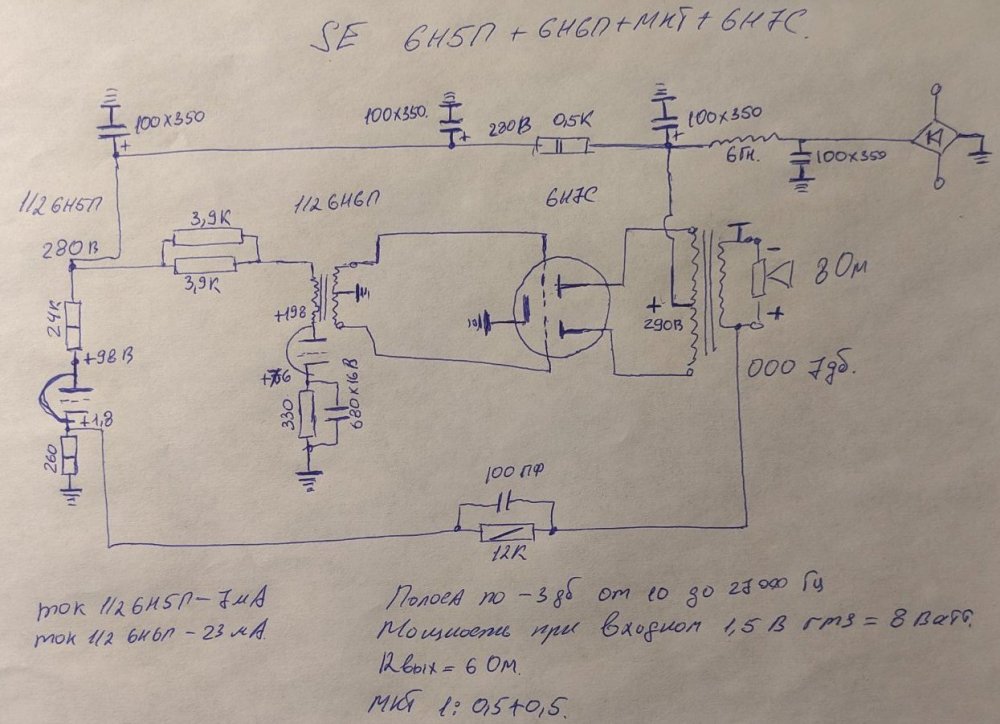 SE 6Н5П + 6Н6П + МКТ + 6Н7С.
100x350
100x350.
280В
0,5К
100x350
6Гн.
100x350
1/2 6Н5П
1/2 6Н6П
6Н7С
3,9К
280В
3,9К
24К
+198
+
290В
-
8 Ом
+
+98В
+1,8
260
330
680x16В
ООО 7дб.
100 пФ
12К
ток 1/2 6Н5П - 7мА
ток 1/2 6Н6П - 23 мА.
Полоса по -3дб от 10 до 27000 Гц
Мощность при входном 1,5 В rms = 8 Ватт.
Rвых = 6 Ом.
МКТ 1: 0,5+0,5.